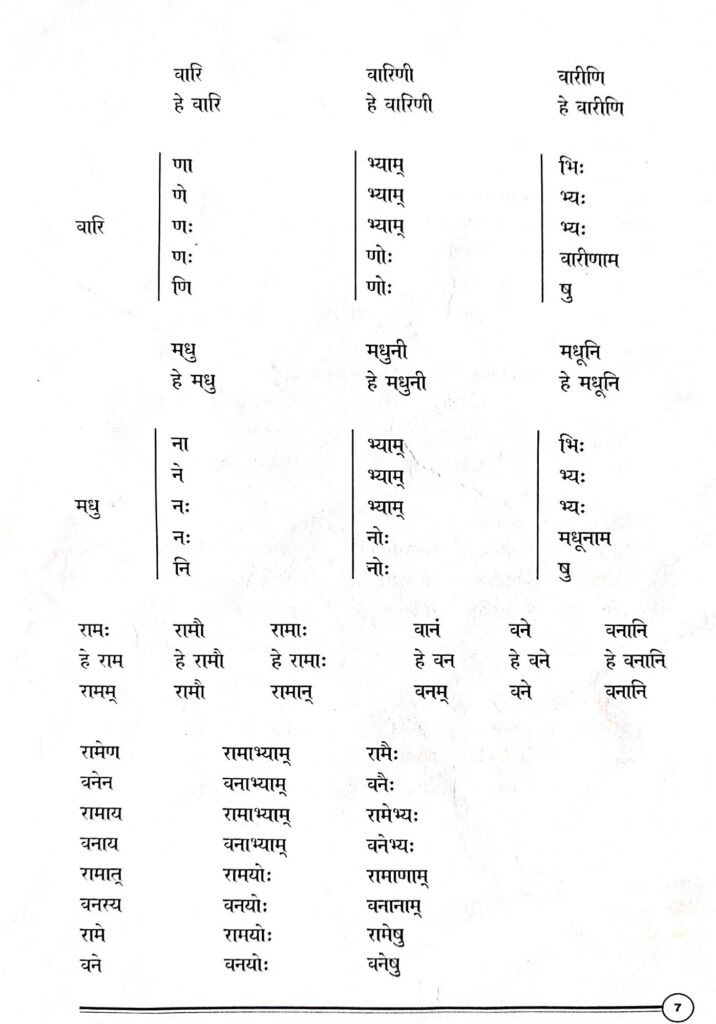 वारि वारिणी वारीणि
हे वारि हे वारिणी हे वारीणि
णा भ्याम् भिः
णे भ्याम् भ्यः
वारि णः भ्याम् भ्यः
णः णोः वारीणाम
णि णोः षु
मधु मधुनी मधूनि
हे मधु हे मधुनी हे मधूनि
ना भ्याम् भिः
ने भ्याम् भ्यः
मधु नः भ्याम् भ्यः
नः नोः मधूनाम
नि नोः षु
रामः रामौ रामाः वानं वने वनानि
हे राम हे रामौ हे रामाः हे वन हे वने हे वनानि
रामम् रामौ रामान् वनम् वने वनानि
रामेण रामाभ्याम् रामैः
वनेन वनाभ्याम् वनैः
रामाय रामाभ्याम् रामेभ्यः
वनाय वनाभ्याम् वनेभ्यः
रामात् रामयोः रामाणाम्
वनस्य वनयोः वनानाम्
रामे रामयोः रामेषु
वने वनयोः वनेषु
7